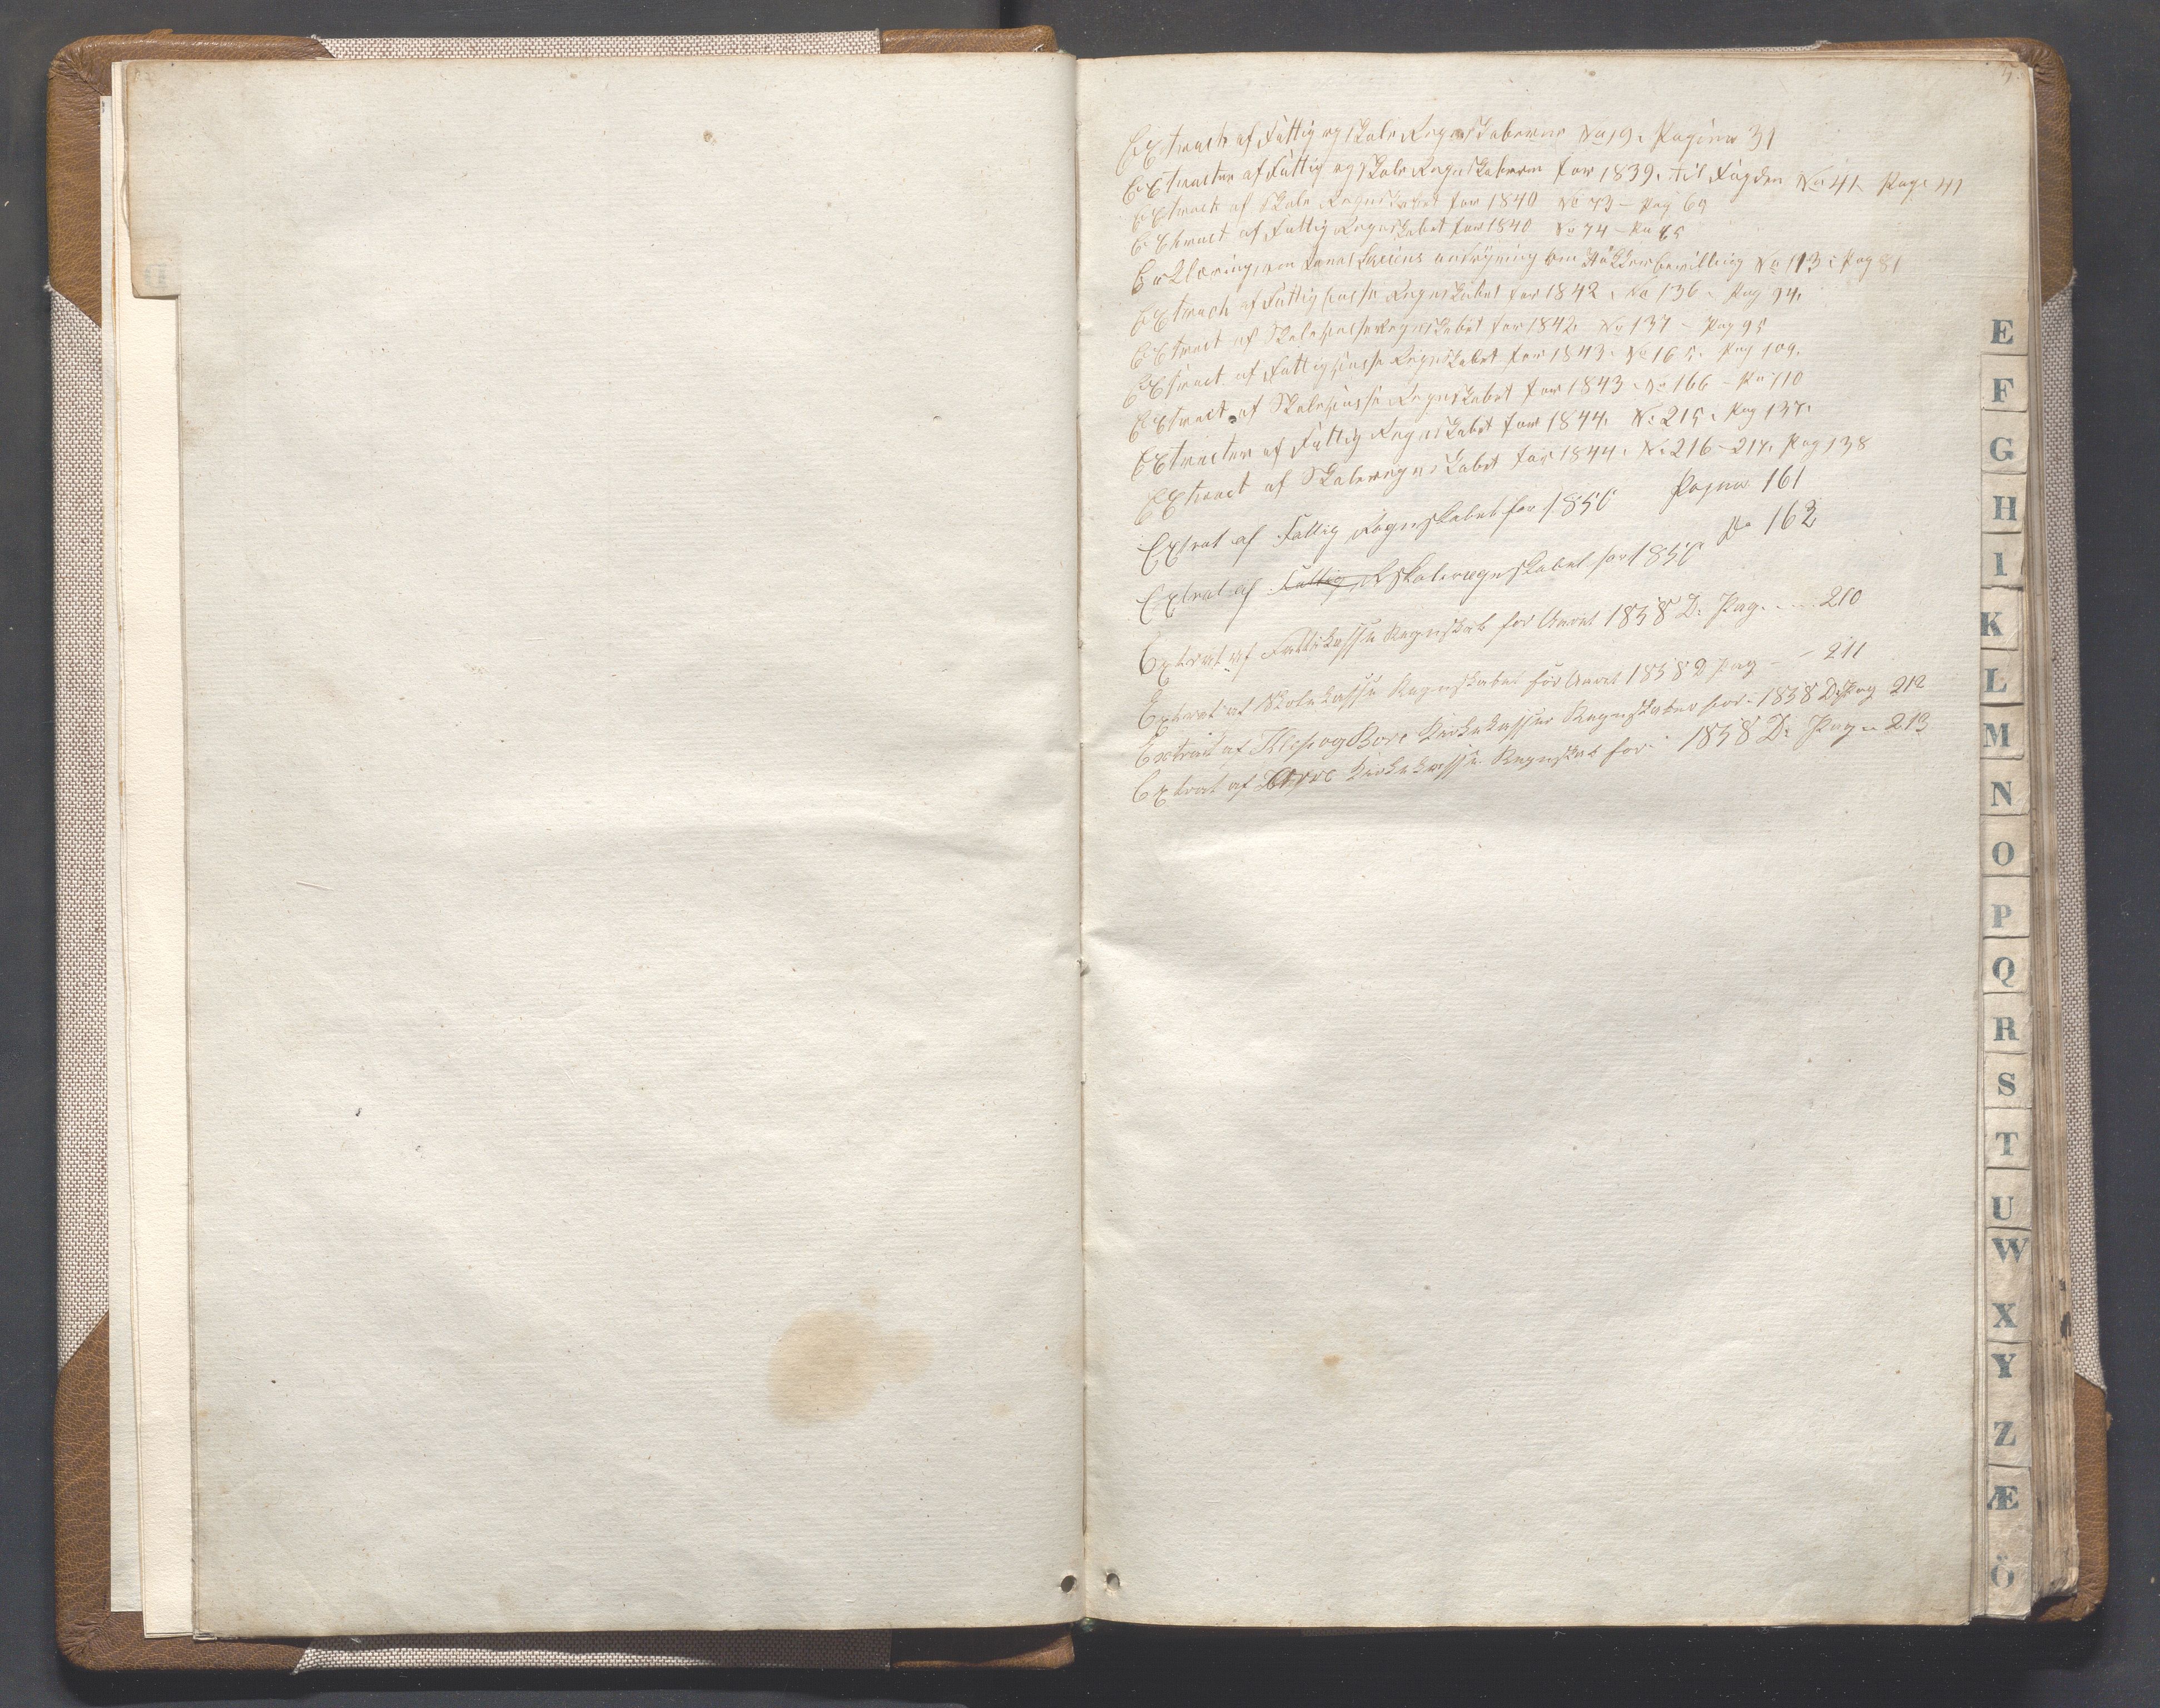 5.
Extract af Fattig og Skole Regnskaberne No 19. Pagina 31
Extracter af Fattig og Skole Regnskaberne for 1839. til Fogden No 41 Pag. 41
Extract af Skole Regnskabet for 1840 No 73 – Pag 64
Extract af Fattig Regnskabet for 1840 No 74 – Pa 65
Erklæring om Jonas andragning om Høkkerbevilling No 113 : Pag 81
Extract af Fattigkasse Regnskabet for 1842. No 136 – Pag 94.
Extract af Skolekasseregnskabet for 1842. No 137 – Pag 95
Extract af Fattigkasse Regnskabet for 1843. No 165. Pag 109.
Extract af Skolekasse Regnskabet for 1843 – No 166 – Pa 110
Extracter af Fattig Regnskabet for 1844. No 215. Pag 137.
Extract af Skoleregnskabet for 1844. No 216–217. Pag 138
Extrat af Fattig Regnskabet for 1850 Pagina 161
Extrat af Fattig Skoleregnskabet for 1850 Do 162
Extrat af Fattikasse Regnskab for Aaret 1858 D: Pag. .... 210
Extrat af Skolekasse Regnskabet for Aaret 1858 D pag – – 211
Extrat af Klep og Bore Kirkekasser Regnskaber for 1858 D: Pag 212
Extrat af Orre Kirkekasse Regnskab for 1858 D: Pag .. 213
E
F
G
H
I
K
L
M
N
O
P
Q
R
S
T
U
W
X
Y
Z
Æ
Ö